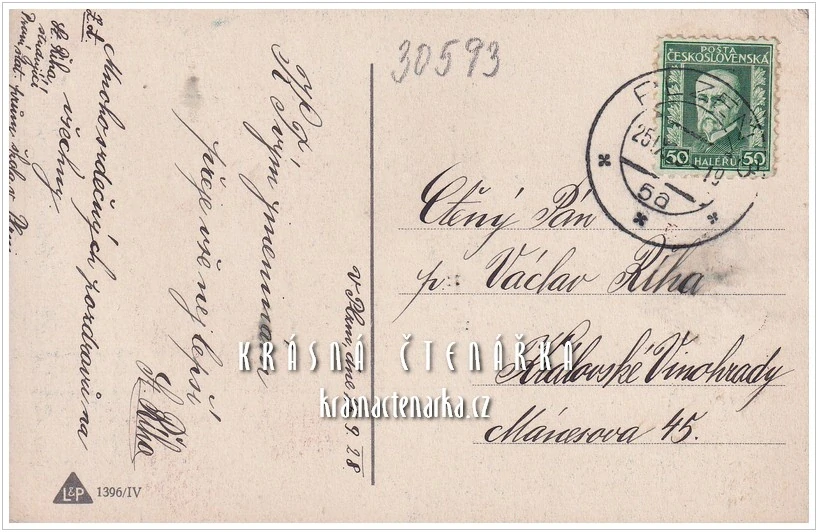 30593
POŠTA
ČESKOSLOVENSKÁ
50 HALÉŘŮ 50
PLZEŇ
25.IX
19
5a
Ctěný Pán
p. Václav Říha
Královské Vinohrady
Mánesova 45.
V Plzni, dne 25. 9. 28
K Tvým jmeninám
přeje vše nejlepší
St. Říha
Mnoho srdečných pozdravů na
všechny
St. Říha,
KRÁSNÁ ČTENÁŘKA
krasnactenarka.cz
L&P 1396/IV